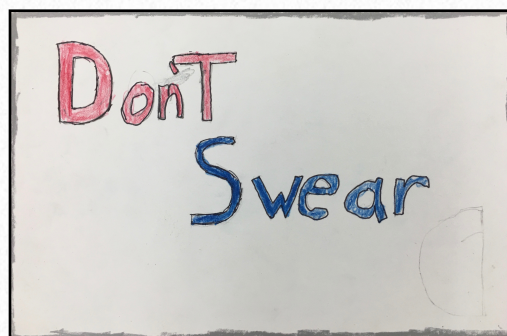 Don'T
Swear